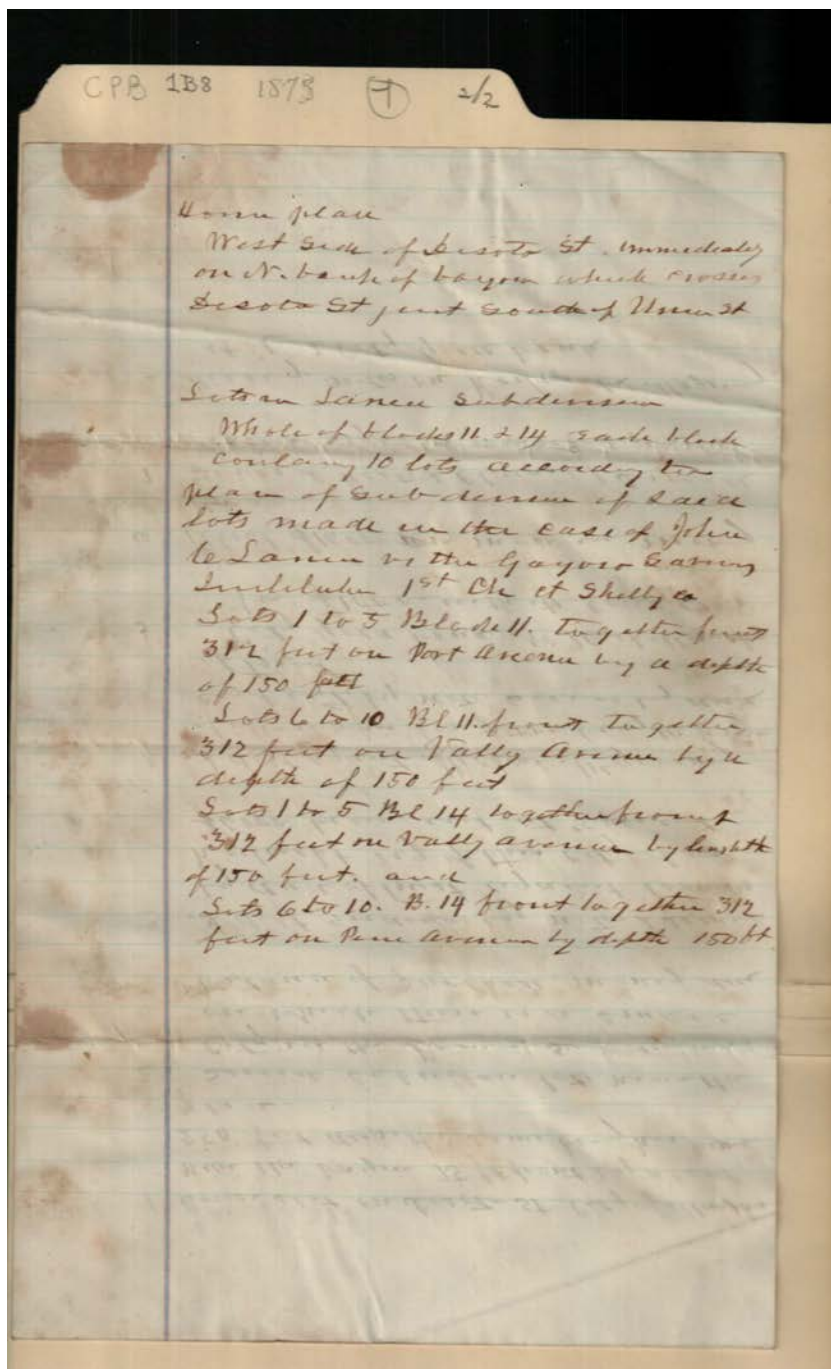 CPB 1B8 1873 1 2/2
Home place
West Side of Desoto St. immediately
on N. bank of bayou which crosses
Desoto St just South of Union St
Lots in Lanier Subdivision
Whole of blocks 11 & 14 each block
containg 10 lots according to
plan of subdivision of said
lots made in the case of John
C Lanier vs the Gayoso Savings
Institution 1st Ch Ct Shelby co
Lots 1 to 5 Block 11. together front
312 feet on Avenue by a depth
of 150 feet
Lots 6 to 10 Bl 11. front together
312 feet on Vally Avenue by a
depth of 150 feet
Lots 1 to 5 Bl 14 together front
312 feet on Vally avenue by
of 150 feet. and
Lots 6 to 10. B. 14 front together 312
feet on avenue by depth 150 ft